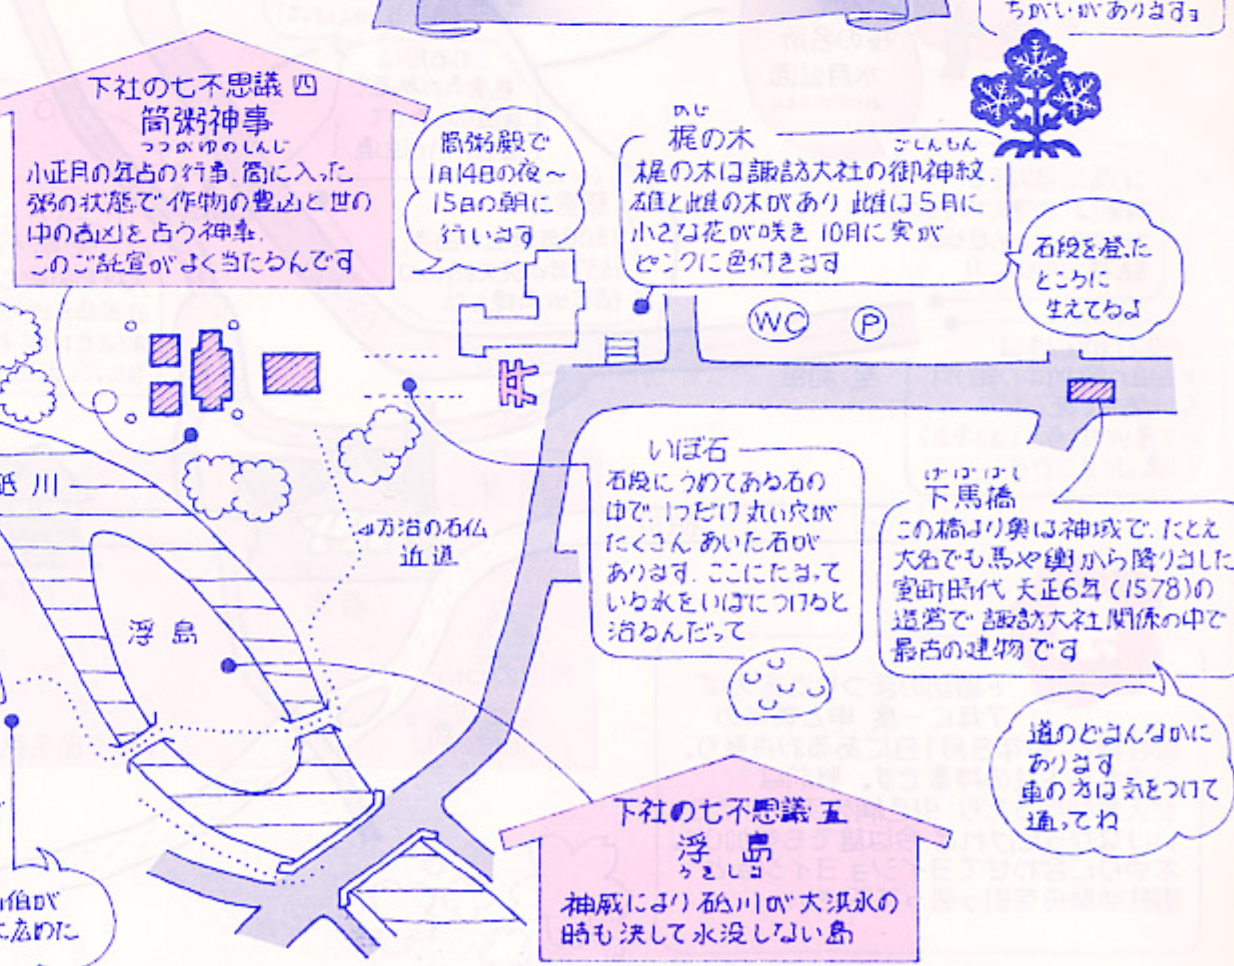 ちがいがあります。
下社の七不思議 四
筒粥神事
つつがゆのしんじ
小正月の年占の行事.筒に入った
粥の状態で作物の豊凶と世の
中の吉凶を占う神事.
このご託宣がよく当たるんです
筒粥殿で
1月14日の夜～
15日の朝に
行います
かじ
梶の木
ごしんもん
梶の木は諏訪大社の御神紋.
雄と雌の木があり 雌は5月に
小さな花が咲き 10月に実が
ピンクに色付きます
石段を登った
ところに
生えてるよ
WC
P
砥川
万治の石仏
近道
浮島
いぼ石
石段にうめてある石の
中で、1つだけ丸い穴が
たくさん あいた石が
あります. ここにたまって
いる水をいぼにつけると
治るんだって
げばばし
下馬橋
この橋より奥は神域で、たとえ
大名でも馬や輿から降りました
室町時代 天正6年(1578)の
造営で 諏訪大社関係の中で
最古の建物です
道のどまんなかに
あります
車の方は気をつけて
通ってね
下社の七不思議 五
浮島
うきしま
神威により砥川が大洪水の
時も決して水没しない島
伯が
に広めた